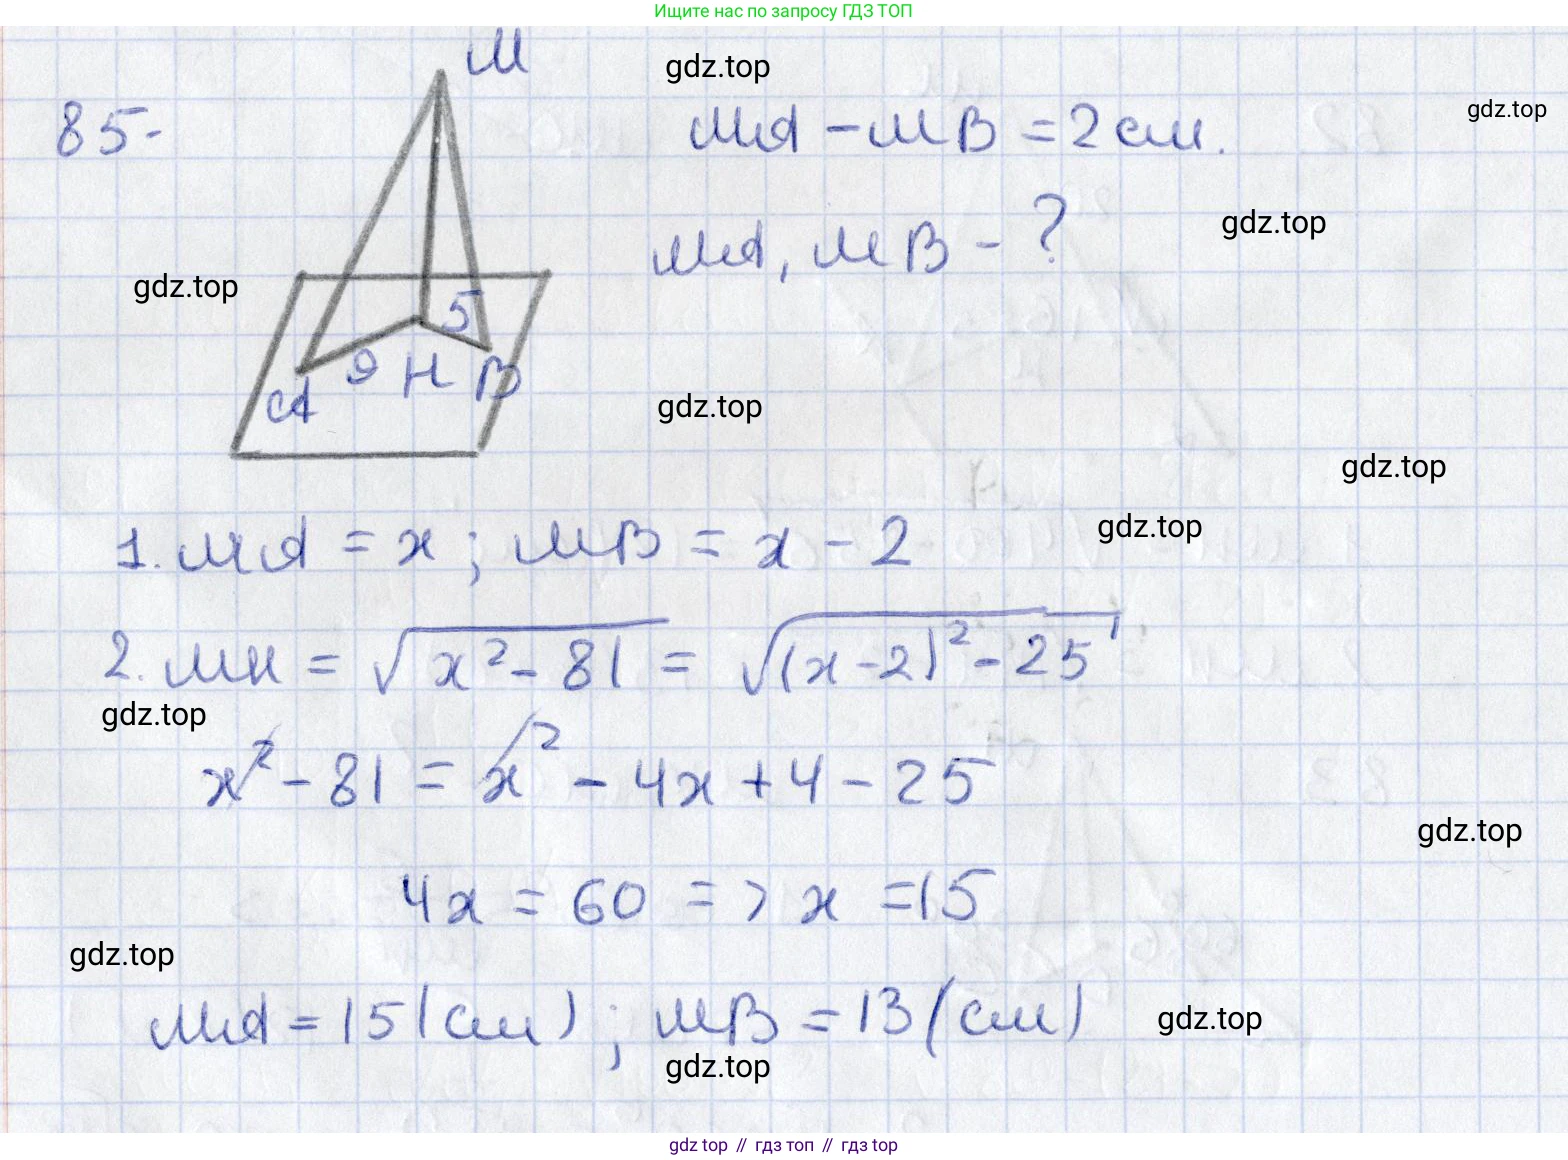 Ищите нас по запросу ГДЗ ТОП
M
gdz.top
85.
MA - MB = 2 см.
gdz.top
MA, MB - ?
gdz.top
gdz.top
5
9 H B
A
gdz.top
gdz.top
1. MA = x ; MB = x - 2
gdz.top
2. MH = √x² - 81 = √(x-2)² - 25
gdz.top
x² - 81 = x² - 4x + 4 - 25
gdz.top
4x = 60 => x = 15
gdz.top
MA = 15 (см) ; MB = 13 (см)
gdz.top
gdz.top
gdz top // гдз топ // гдз top